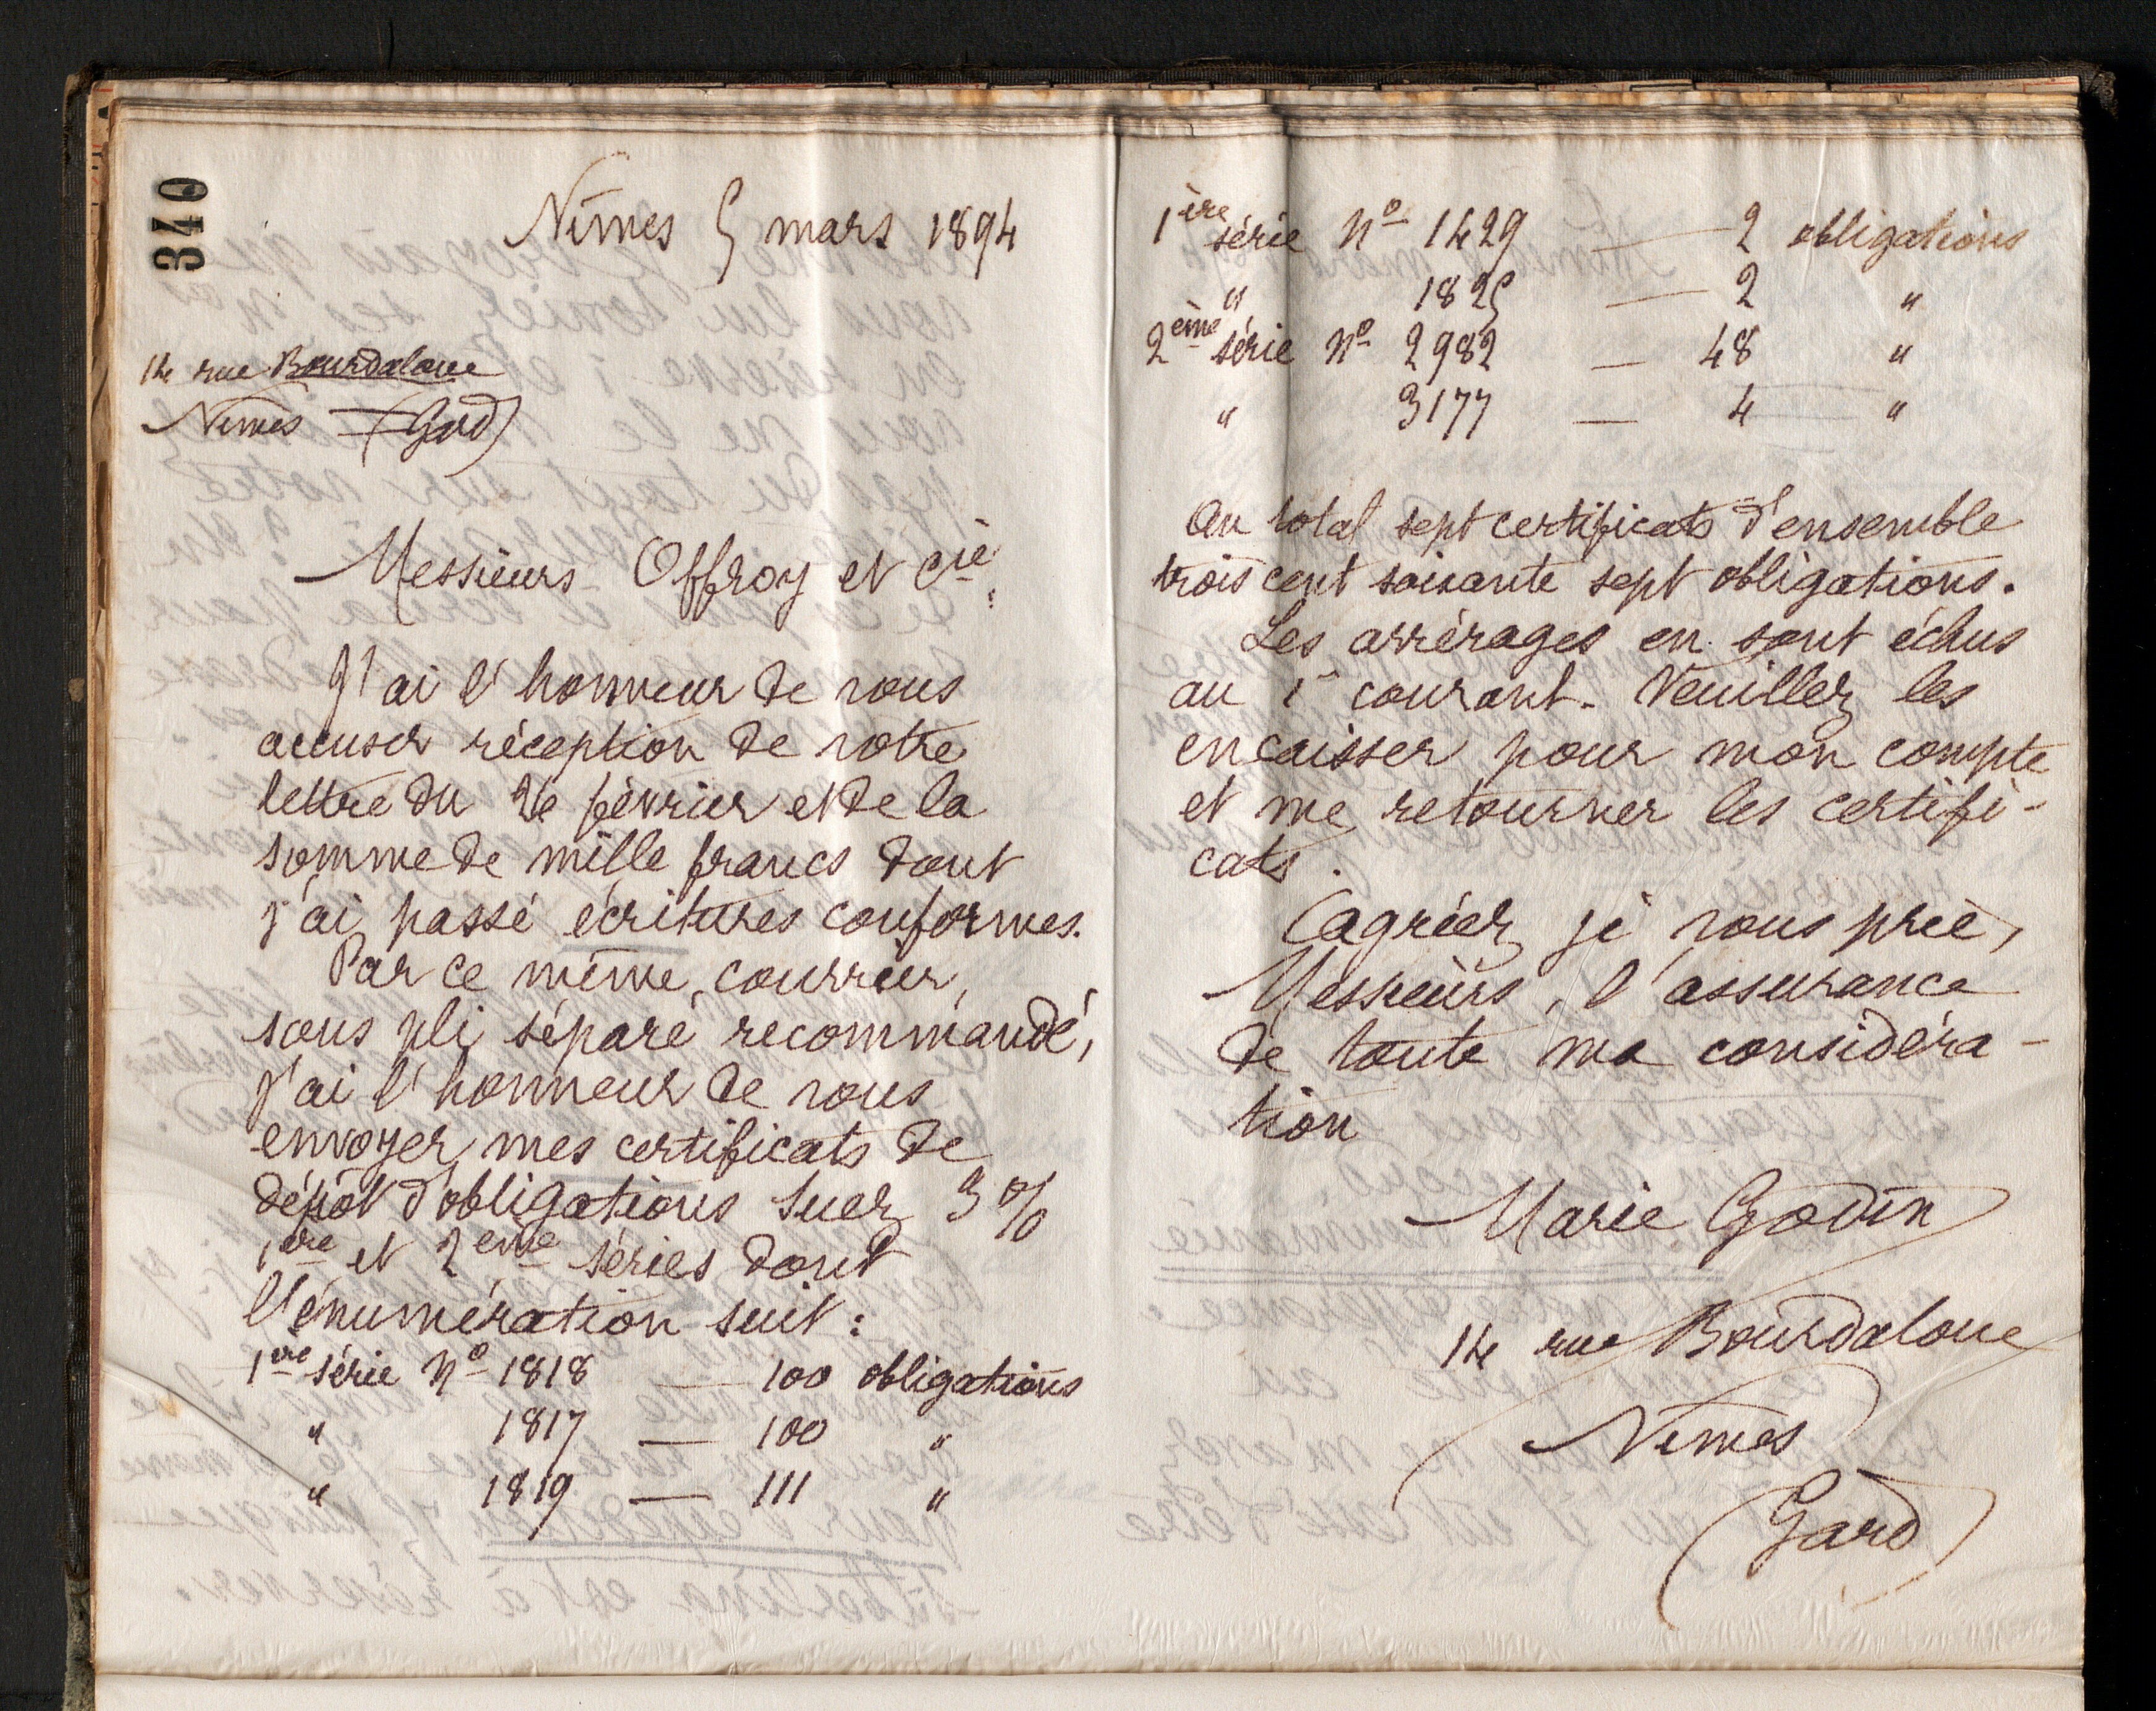 340
Nîmes 5 mars 1894
14 rue Bourdaloue
Nîmes (Gard)
Messieurs Offroy et Cie.
J'ai l'honneur de vous
accuser réception de votre
lettre du 26 février et de la
somme de mille francs dont
j'ai passé écritures conformes.
Par ce même courrier,
sous pli séparé recommandé,
j'ai l'honneur de vous
envoyer mes certificats de
dépôt d'obligations Suez 3 %
1ère et 2ème séries dont
l'énumération suit :
1ère série No 1818 — 100 obligations
" 1817 — 100 "
" 1819 — 111 "
1ère série No 1429 — 2 obligations
" 1825 — 2 "
2ème série No 2982 — 48 "
" 3177 — 4 "
Au total sept certificats d'ensemble
trois cent soixante sept obligations.
Les arrérages en sont échus
au 1er courant. Veuillez les
encaisser pour mon compte
et me retourner les certifi-
cats.
Agréez, je vous prie,
Messieurs, l'assurance
de toute ma considéra-
tion
Marie Godin
14 rue Bourdaloue
Nîmes
(Gard)